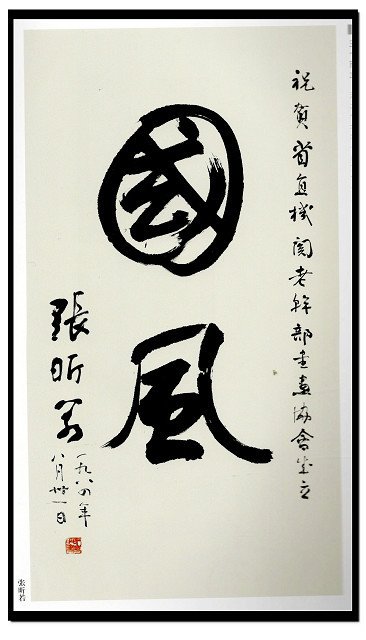 祝賀省直機関老幹部書畫協會成立
國風
張昕若
一九八四年
八月卅一日
张昕若